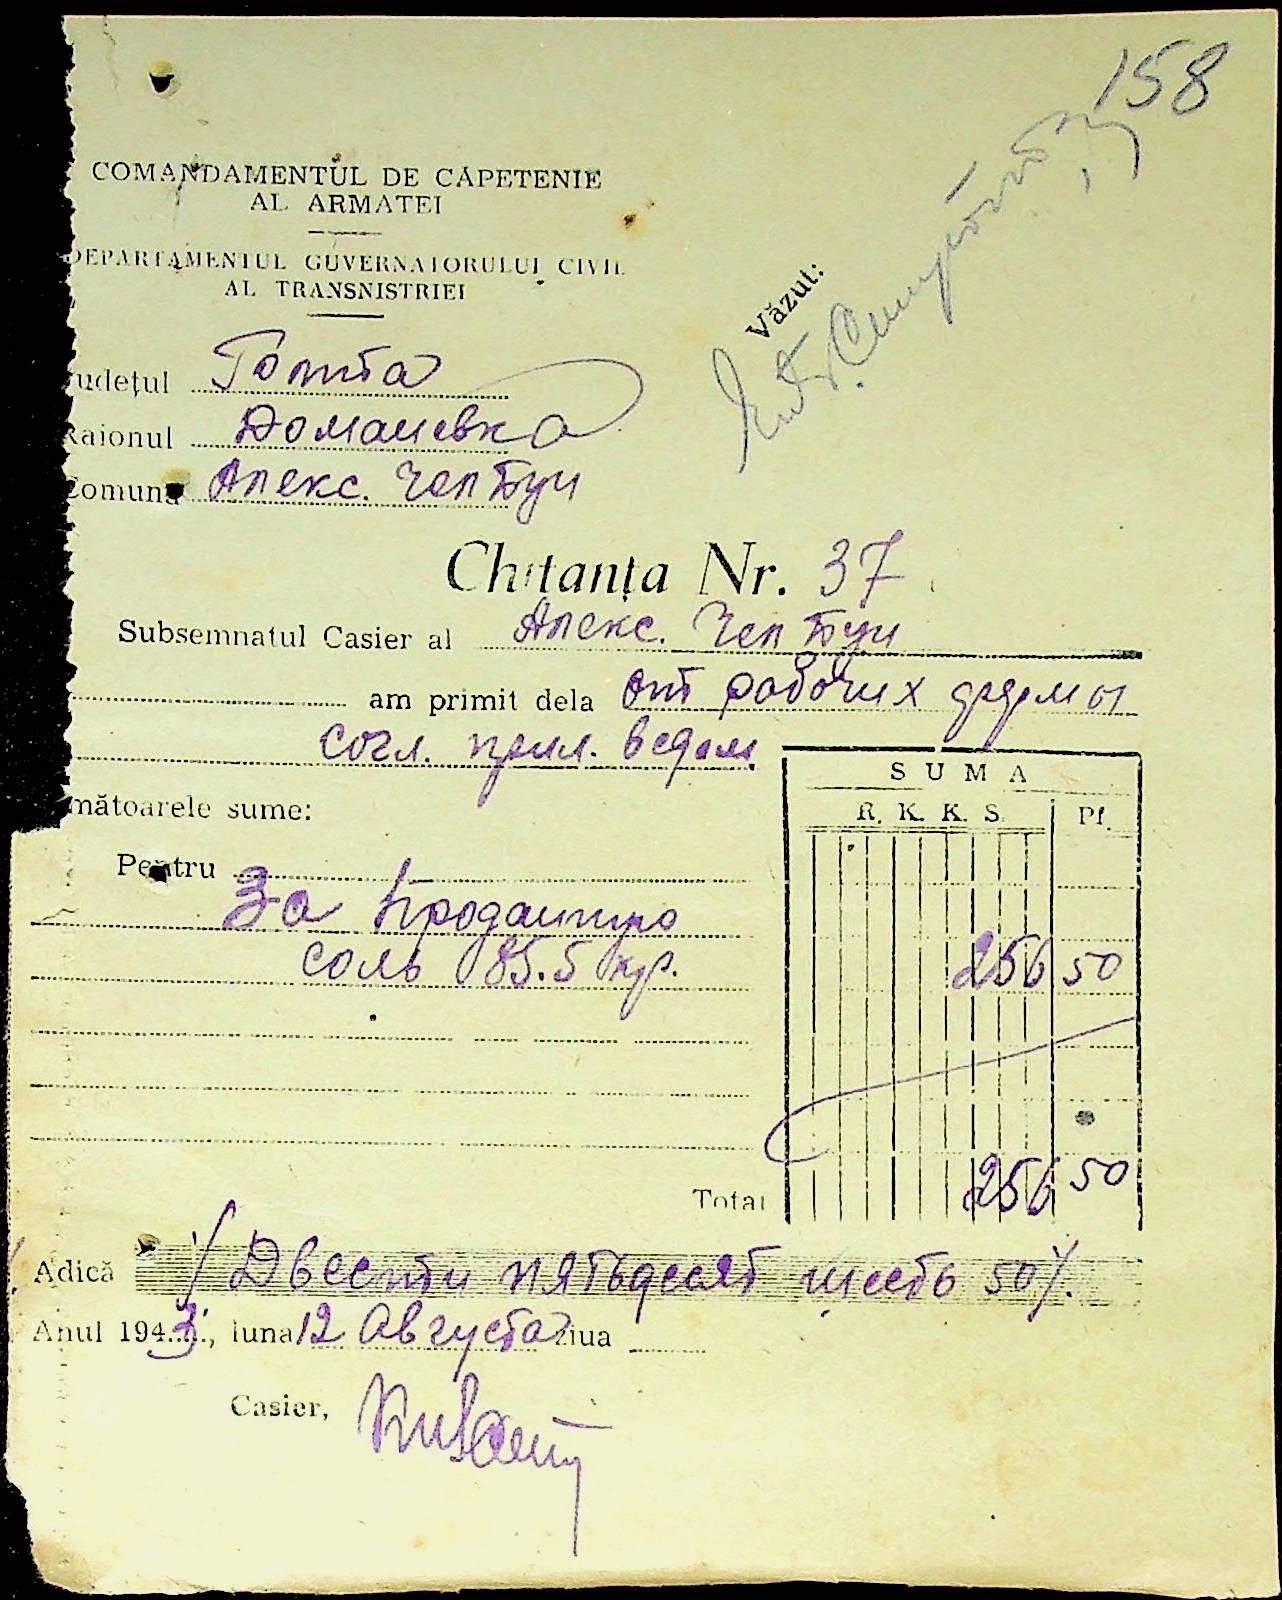 158
COMANDAMENTUL DE CAPETENIE
AL ARMATEI
DEPARTAMENTUL GUVERNATORULUI CIVIL
AL TRANSNISTRIEI
Văzut:
udețul Голта
Raionul Домановка
Comuna Алекс. Чептуи
Chitanța Nr. 37
Subsemnatul Casier al Алекс. Чептуи
am primit dela от рабочих фермы
согл. прил. ведом.
mătoarele sume:
SUMA
R. K. K. S. Pf.
Pentru
За проданную
соль 85.5 кгр. 256 50
Total 256 50
Adică / Двести пятьдесят шесть 50/.
Anul 1943, luna 12 Августа ziua
Casier,